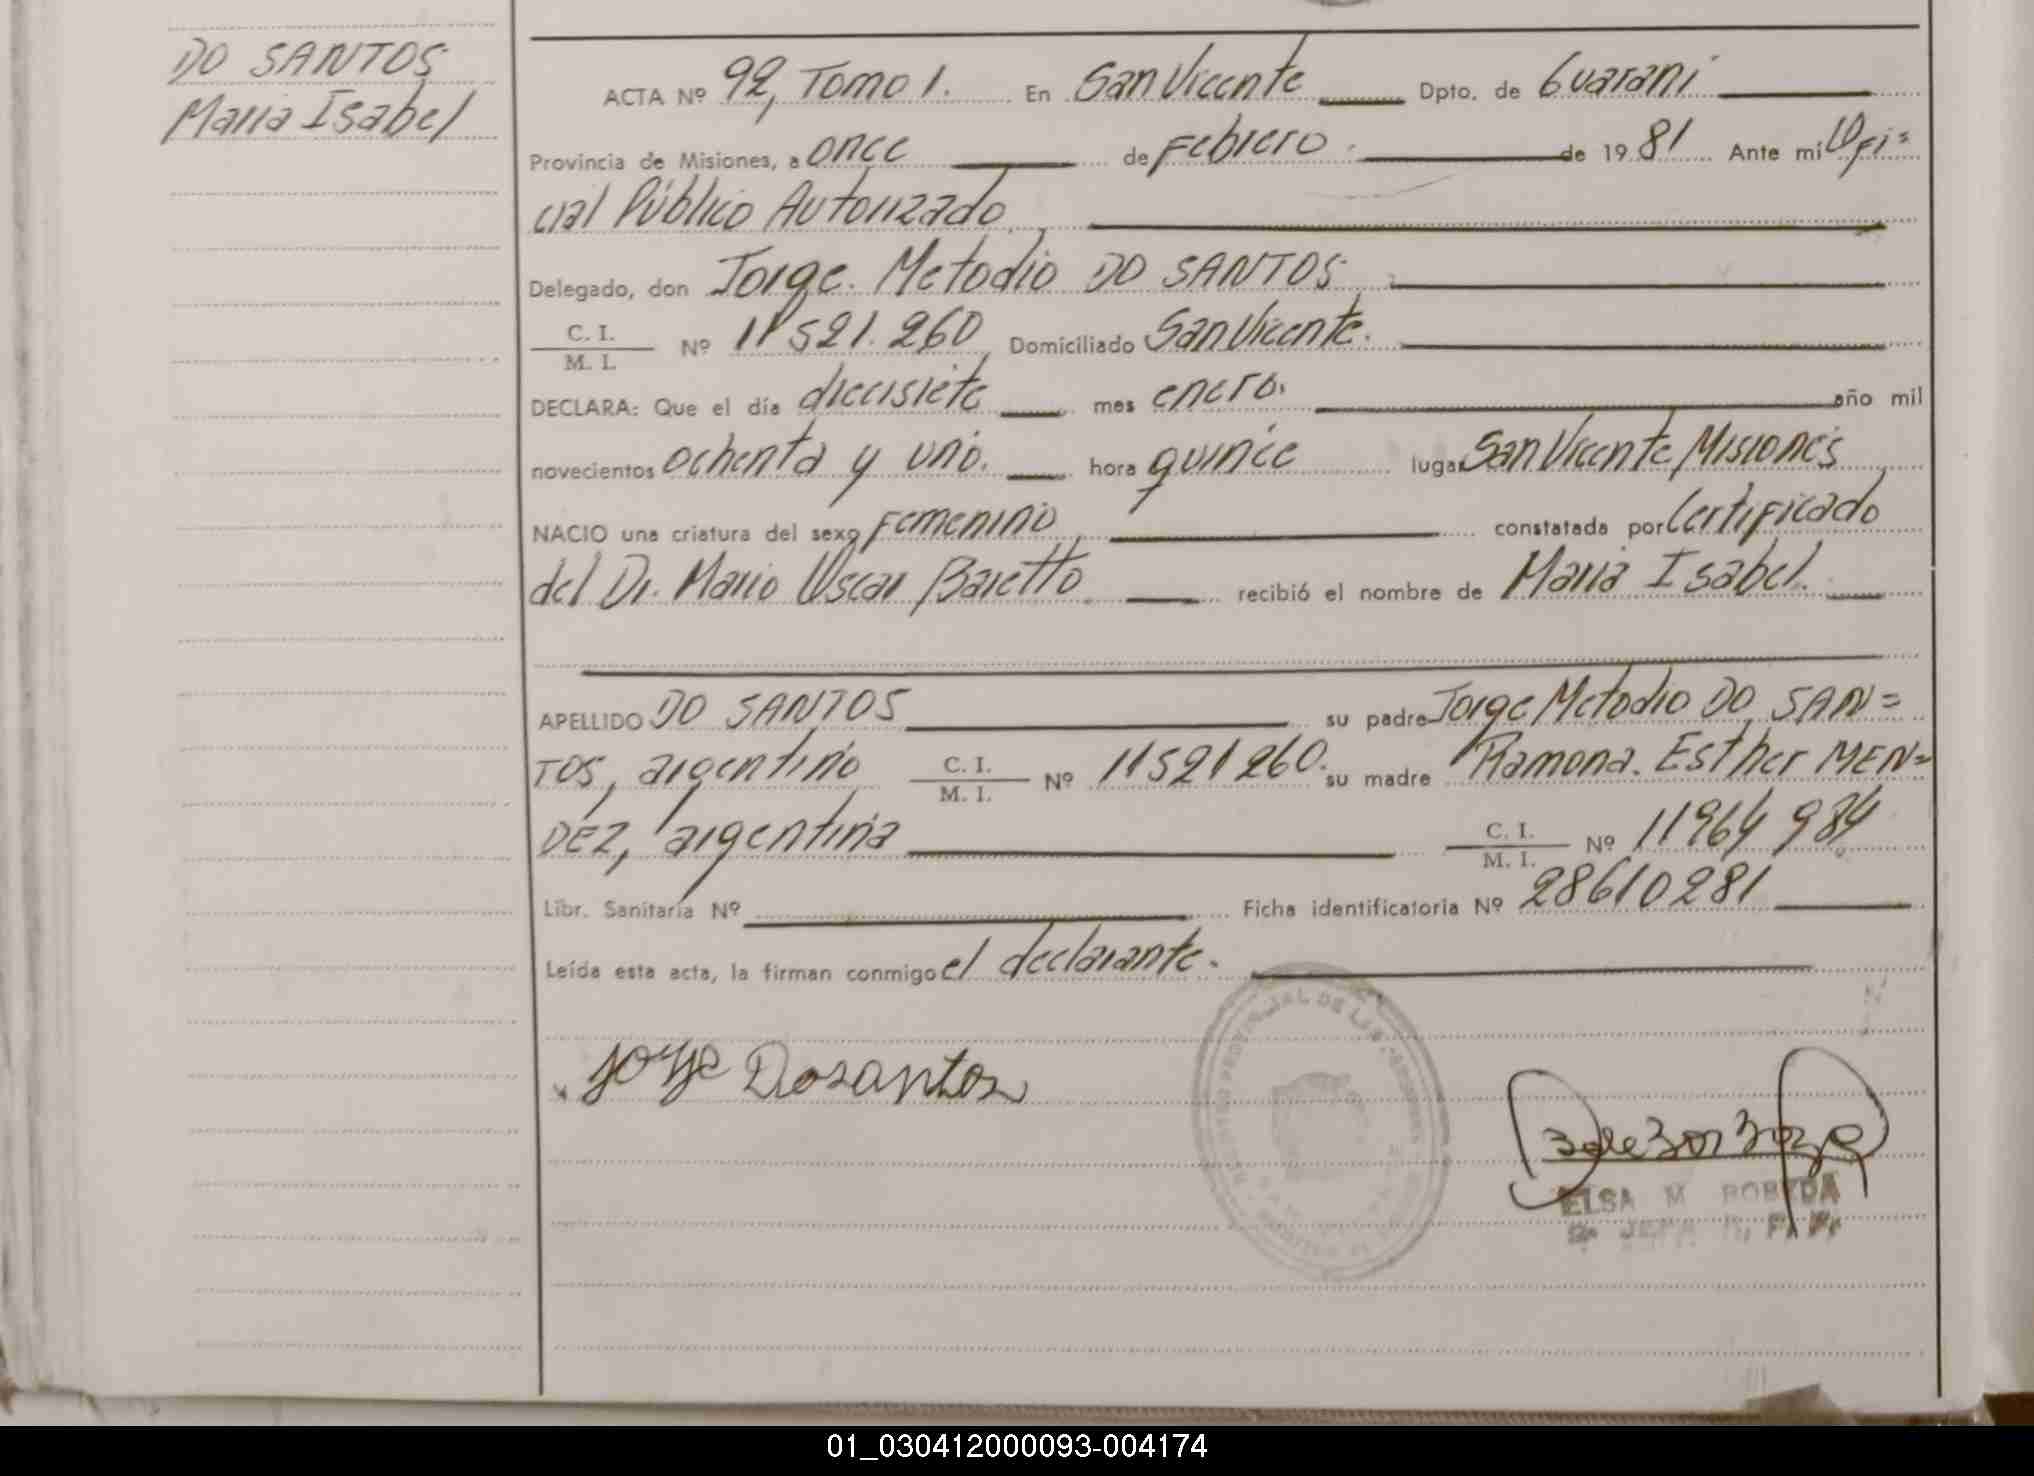 DO SANTOS
Maria Isabel
ACTA Nº 92, Tomo 1. En San Vicente Dpto. de Guarani
Provincia de Misiones, a once de Febrero. de 1981 Ante mi Ofi=
cial Público Autorizado
Delegado, don Jorge. Metodio DO SANTOS
C. I.
M. I. Nº 11521.260 Domiciliado San Vicente.
DECLARA: Que el día diecisiete mes enero. año mil
novecientos ochenta y uno. hora quince lugar San Vicente, Misiones
NACIO una criatura del sexo Femenino constatada por Certificado
del Dr. Mario Oscar Baretto recibió el nombre de Maria Isabel.
APELLIDO DO SANTOS su padre Jorge Metodio DO SAN=
TOS, argentino C. I.
M. I. Nº 11521260. su madre Ramona. Esther MEN=
DEZ, argentina C. I.
M. I. Nº 11964984
Libr. Sanitaria Nº Ficha identificatoria Nº 28610281
Leída esta acta, la firman conmigo el declarante.
x Jorge Dosantos
ELSA M
01_030412000093-004174